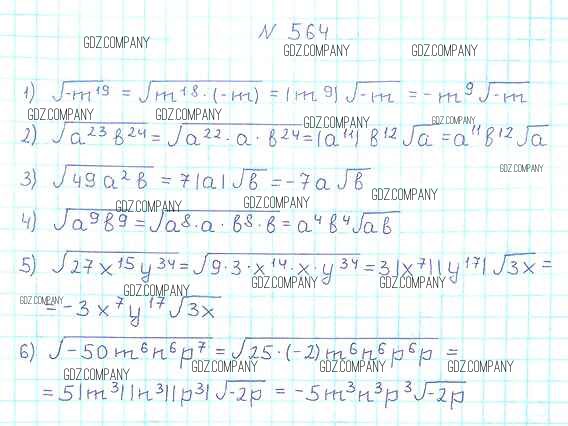 N 564
GDZ.COMPANY GDZ.COMPANY GDZ.COMPANY
1) √-m¹⁹ = √m¹⁸·(-m) = |m⁹| √-m = -m⁹ √-m
GDZ.COMPANY GDZ.COMPANY GDZ.COMPANY GDZ.COMPANY
2) √a²³b²⁴ = √a²²·a·b²⁴ = |a¹¹| b¹² √a = a¹¹b¹² √a
GDZ.COMPANY
3) √49a²b = 7|a| √b = -7a √b
GDZ.COMPANY GDZ.COMPANY GDZ.COMPANY
4) √a⁹b⁹ = √a⁸·a·b⁸·b = a⁴b⁴ √ab
5) √27x¹⁵y³⁴ = √9·3·x¹⁴·x·y³⁴ = 3|x⁷||y¹⁷| √3x =
GDZ.COMPANY GDZ.COMPANY GDZ.COMPANY GDZ.COMPANY
= -3x⁷y¹⁷ √3x
6) √-50m⁶n⁶p⁷ = √25·(-2)m⁶n⁶p⁶p =
GDZ.COMPANY GDZ.COMPANY GDZ.COMPANY GDZ.COMPANY
= 5|m³||n³||p³| √-2p = -5m³n³p³ √-2p